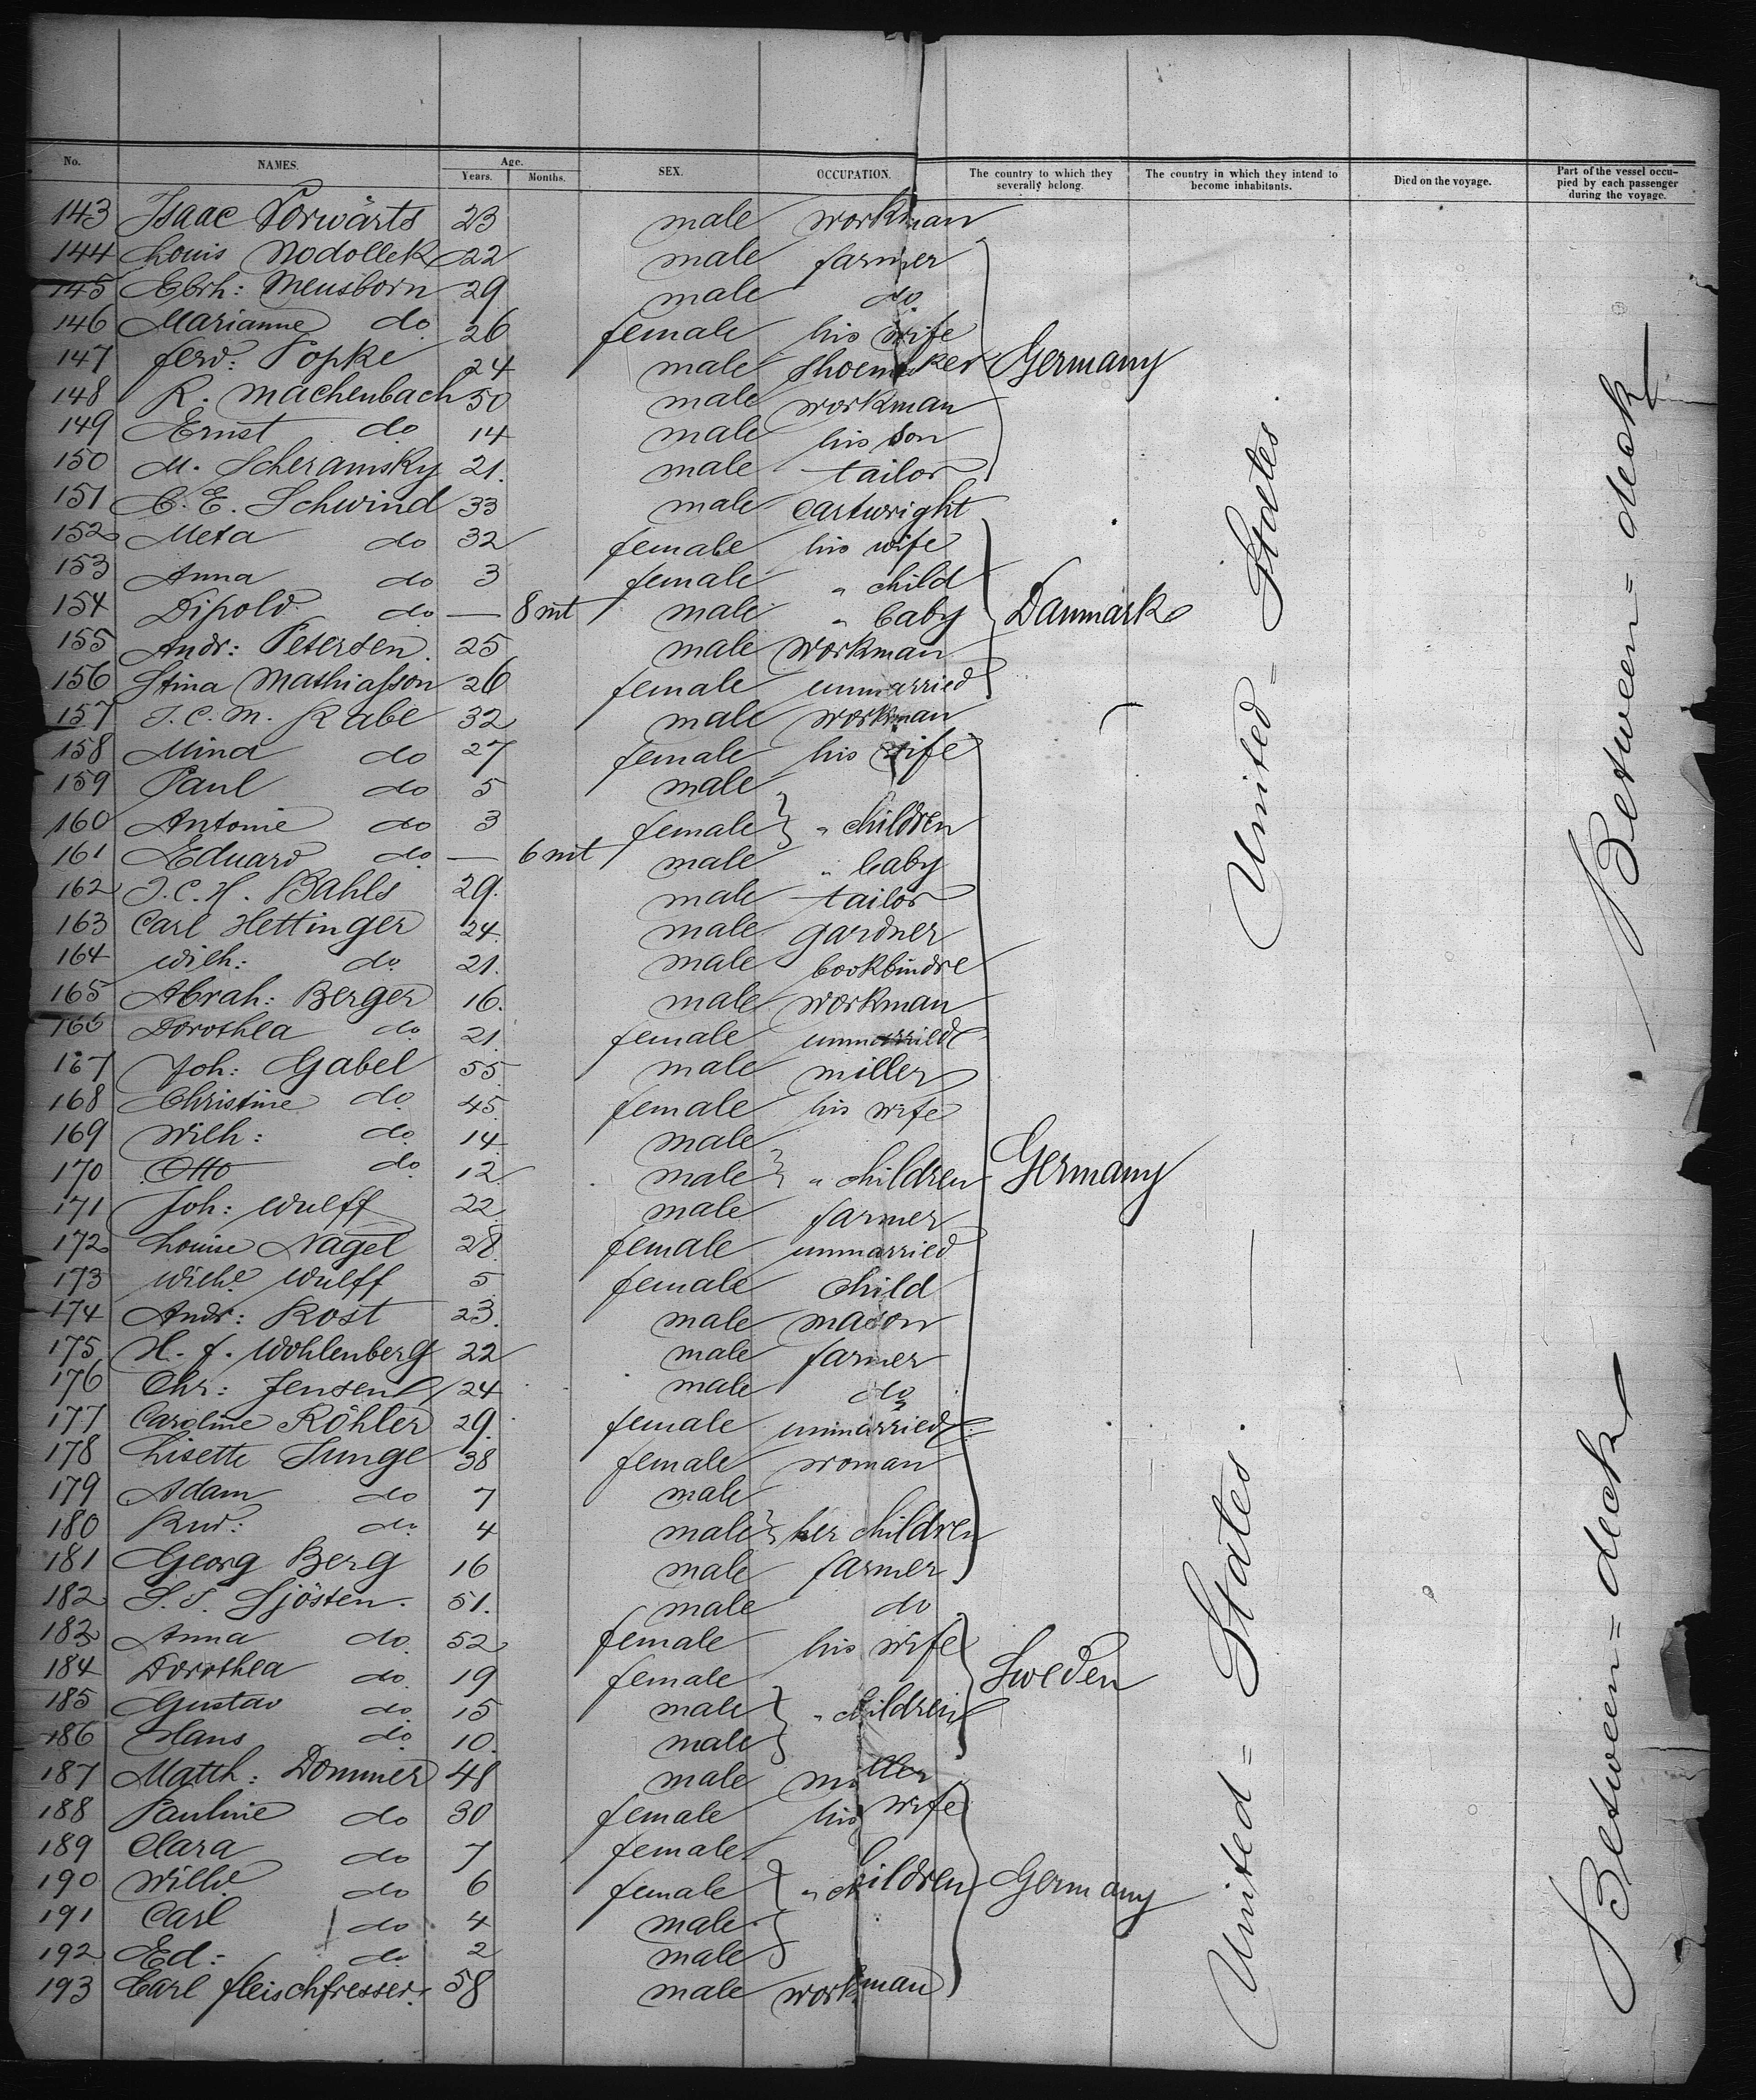 No. NAMES. Age. Years. Months. SEX. OCCUPATION. The country to which they severally belong. The country in which they intend to become inhabitants. Died on the voyage. Part of the vessel occupied by each passenger during the voyage.
143 Isaac Vorwärts 23 male workman
144 Louis Nodolleck 22 male farmer
145 Ebrh: Meusborn 29 male do
146 Marianne do 26 female his wife
147 Ferd: Popke 24 male shoemaker Germany
148 R. Machenbach 50 male workman
149 Ernst do 14 male his son
150 M. Scheramsky 21. male tailor
151 C. E. Schwind 33 male cartwright
152 Meta do 32 female his wife
153 Anna do 3 female " child
154 Dipold do — 8 mt male " baby Danmark
155 Andr: Petersen 25 male workman
156 Stina Mathiasson 26 female unmarried
157 J. C. M. Rabe 32 male workman
158 Mina do 27 female his wife
159 Paul do 5 male
160 Antonie do 3 female " children
161 Eduard do — 6 mt male " baby
162 J. C. H. Bahls 29. male tailor
163 Carl Hettinger 24. male gardner
164 Wilh: do 21. male bookbindre
165 Abrah: Berger 16. male workman
166 Dorothea do 21. female unmarried
167 Joh: Gabel 55 male miller
168 Christine do 45 female his wife
169 Wilh: do 14 male
170 Otto do 12 male " children Germany
171 Joh: Wulff 22 male farmer
172 Louise Nagel 28 female unmarried
173 Wilhe Wulff 5 female child
174 Andr: Rost 23. male mason
175 H. F. Wohlenberg 22 male farmer
176 Chr: Jensen 24 male do
177 Caroline Röhler 29. female unmarried
178 Lisette Junge 38 female woman
179 Adam do 7 male
180 Rud: do 4 male her children
181 Georg Berg 16 male farmer
182 S. J. Sjösten. 51. male do
183 Anna do 52 female his wife
184 Dorothea do 19 female Sweden
185 Gustav do 15 male " children
186 Hans do 10. male
187 Matth: Dommer 48 male miller
188 Pauline do 30 female his wife
189 Clara do 7 female
190 Wilhe do 6 female " children Germany
191 Carl do 4 male
192 Ed: do 2 male
193 Carl Fleischfresser. 58 male workman
United = States.
United = States.
Between = deck
Between = deck